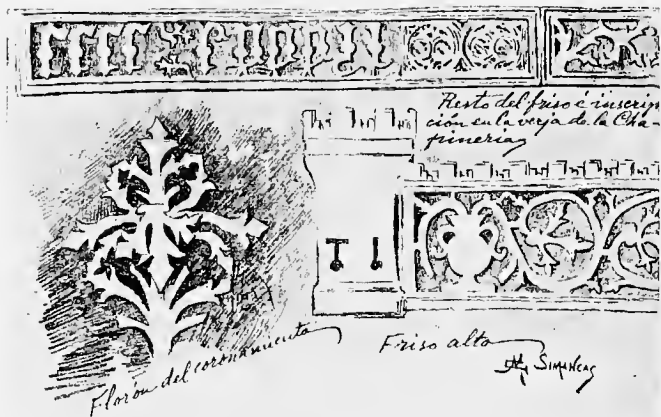 Resto del friso é inscrip
ción en la verja de la Cha-
pinería
Florón del coronamiento
Friso alto
Simancas